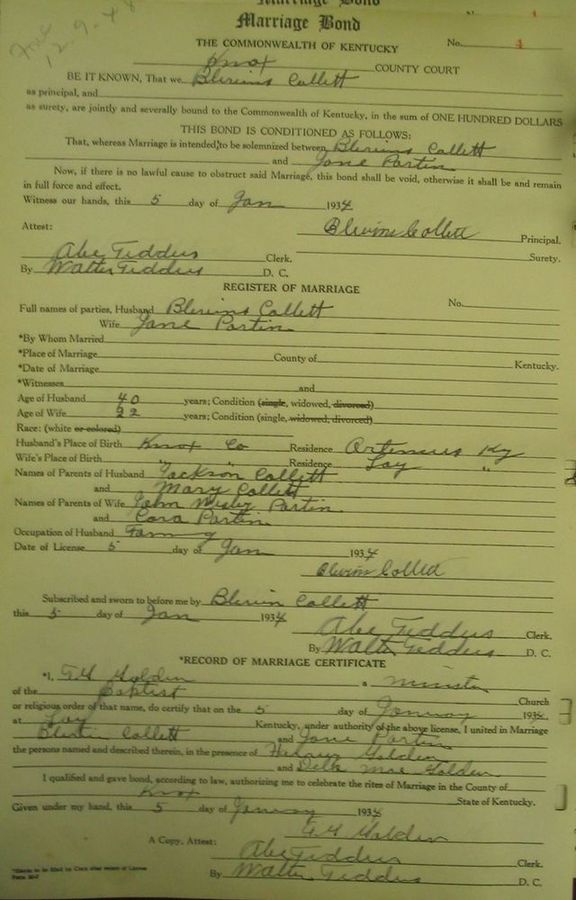 Marriage Bond
Marriage Bond
THE COMMONWEALTH OF KENTUCKY No. 1
Knox COUNTY COURT
BE IT KNOWN, That we Blevins Collett
as principal, and
as surety, are jointly and severally bound to the Commonwealth of Kentucky, in the sum of ONE HUNDRED DOLLARS
THIS BOND IS CONDITIONED AS FOLLOWS:
That, whereas Marriage is intended to be solemnized between Blevins Collett
and Jane Partin
Now, if there is no lawful cause to obstruct said Marriage, this bond shall be void, otherwise it shall be and remain
in full force and effect.
Witness our hands, this 5 day of Jan 1934
Blevins Collett Principal.
Attest:
Surety.
Abe Tedders Clerk.
By Walter Tedders D. C.
REGISTER OF MARRIAGE
No.
Full names of parties, Husband Blevins Collett
Wife Jane Partin
*By Whom Married
*Place of Marriage County of Kentucky.
*Date of Marriage
*Witnesses and
Age of Husband 40 years; Condition (single, widowed, divorced)
Age of Wife 22 years; Condition (single, widowed, divorced)
Race: (white or colored)
Husband's Place of Birth Knox Co Residence Artemus Ky
Wife's Place of Birth " " Residence Jay "
Names of Parents of Husband Jackson Collett
and Mary Collett
Names of Parents of Wife John Wesly Partin
and Cora Partin
Occupation of Husband
Date of License 5 day of Jan 1934
Blevins Collett
Subscribed and sworn to before me by Blevin Collett
this 5 day of Jan 1934
Abe Tedders Clerk.
By Walter Tedders D. C.
*RECORD OF MARRIAGE CERTIFICATE
*I, Golden a Minister
of the Baptist Church
or religious order of that name, do certify that on the 5 day of January 1934
at Jay Kentucky, under authority of the above license, I united in Marriage
Collett and Jane Partin
the persons named and described therein, in the presence of Golden
and Della Mae Golden
I qualified and gave bond, according to law, authorizing me to celebrate the rites of Marriage in the County of
Knox State of Kentucky.
Given under my hand, this 5 day of January 1934
Golden
A Copy, Attest:
Abe Tedders Clerk.
By Walter Tedders D. C.